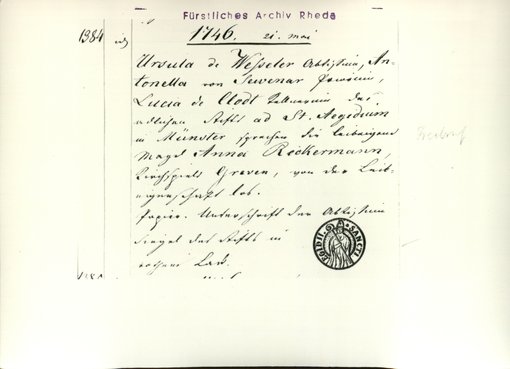 Fürstliches Archiv Rheda
1384
1746. 21. mai
Ursula de Wesseler Abtißin, An-
tonetta von
Lucia de Clodt Kellnerin des
adlichen Stifts ad St. Aegidium
in Münster sprechen die leibeigene
Magd Anna Reckermann,
Kirchspiels Greven, von der Leib-
eigenschaft los.
Papier. Unterschrift der Abtißin
Siegel des Stifts in
rothem Lack.
Freibrief